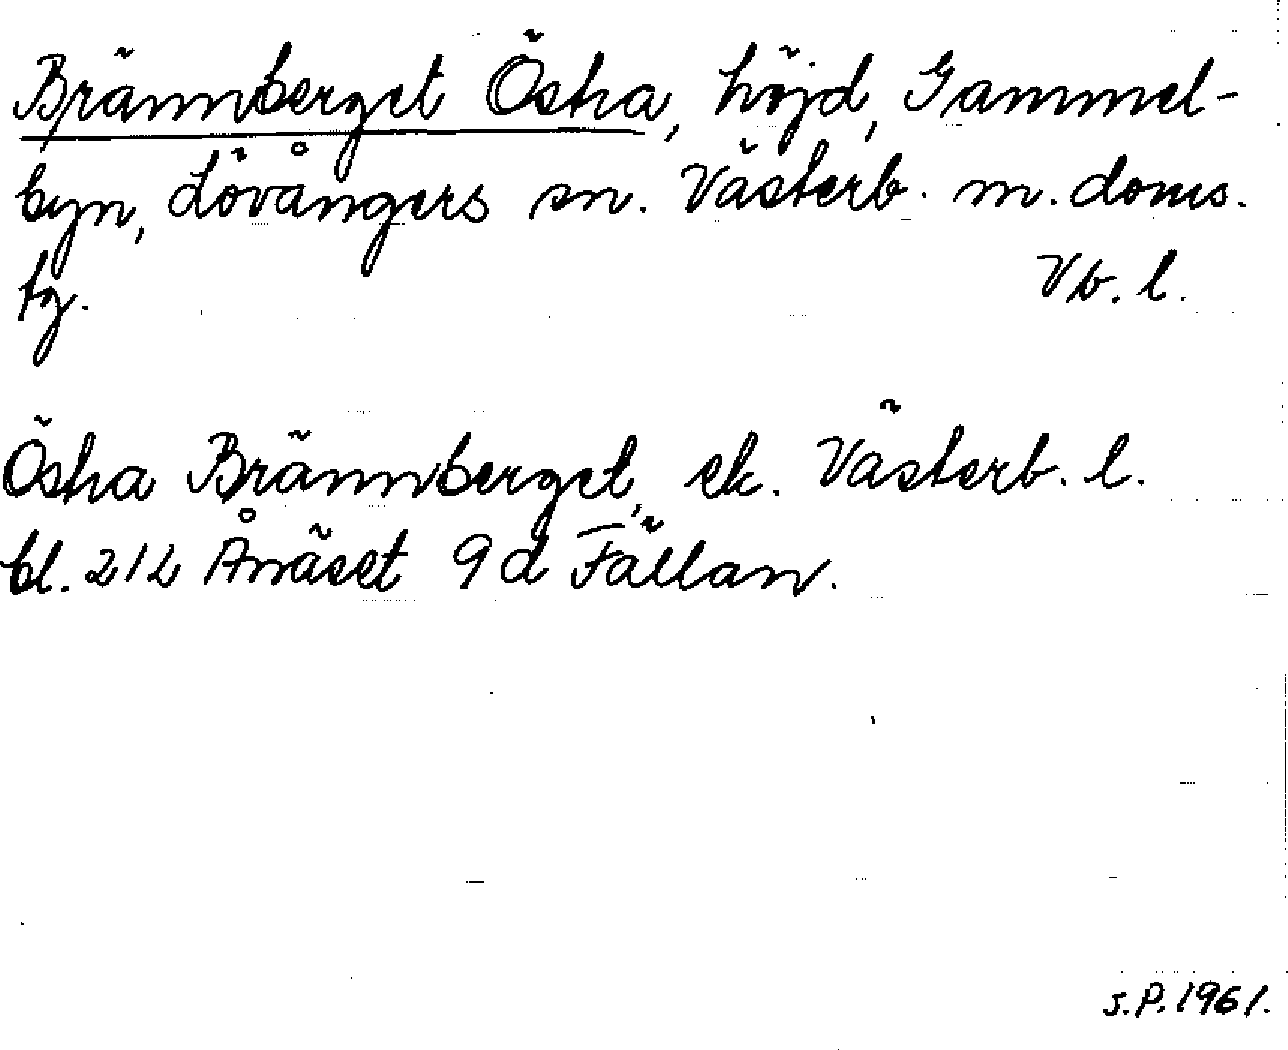 Brännberget Östra, höjd, Gammel-
byn, Lövångers sn. Västerb. m. doms.
tg. Vb. l.
Östra Brännberget, ek. Västerb. l.
bl. 212 Ånäset 9d Fällan.
J.P. 1961.